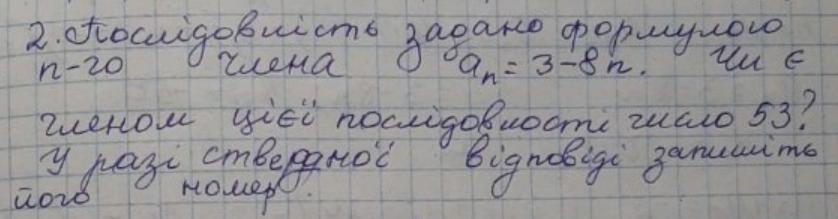 2. Послідовність задано формулою
n-го члена aₙ = 3 - 8n. Чи є
членом цієї послідовності число 53?
У разі ствердної відповіді запишіть
його номер.